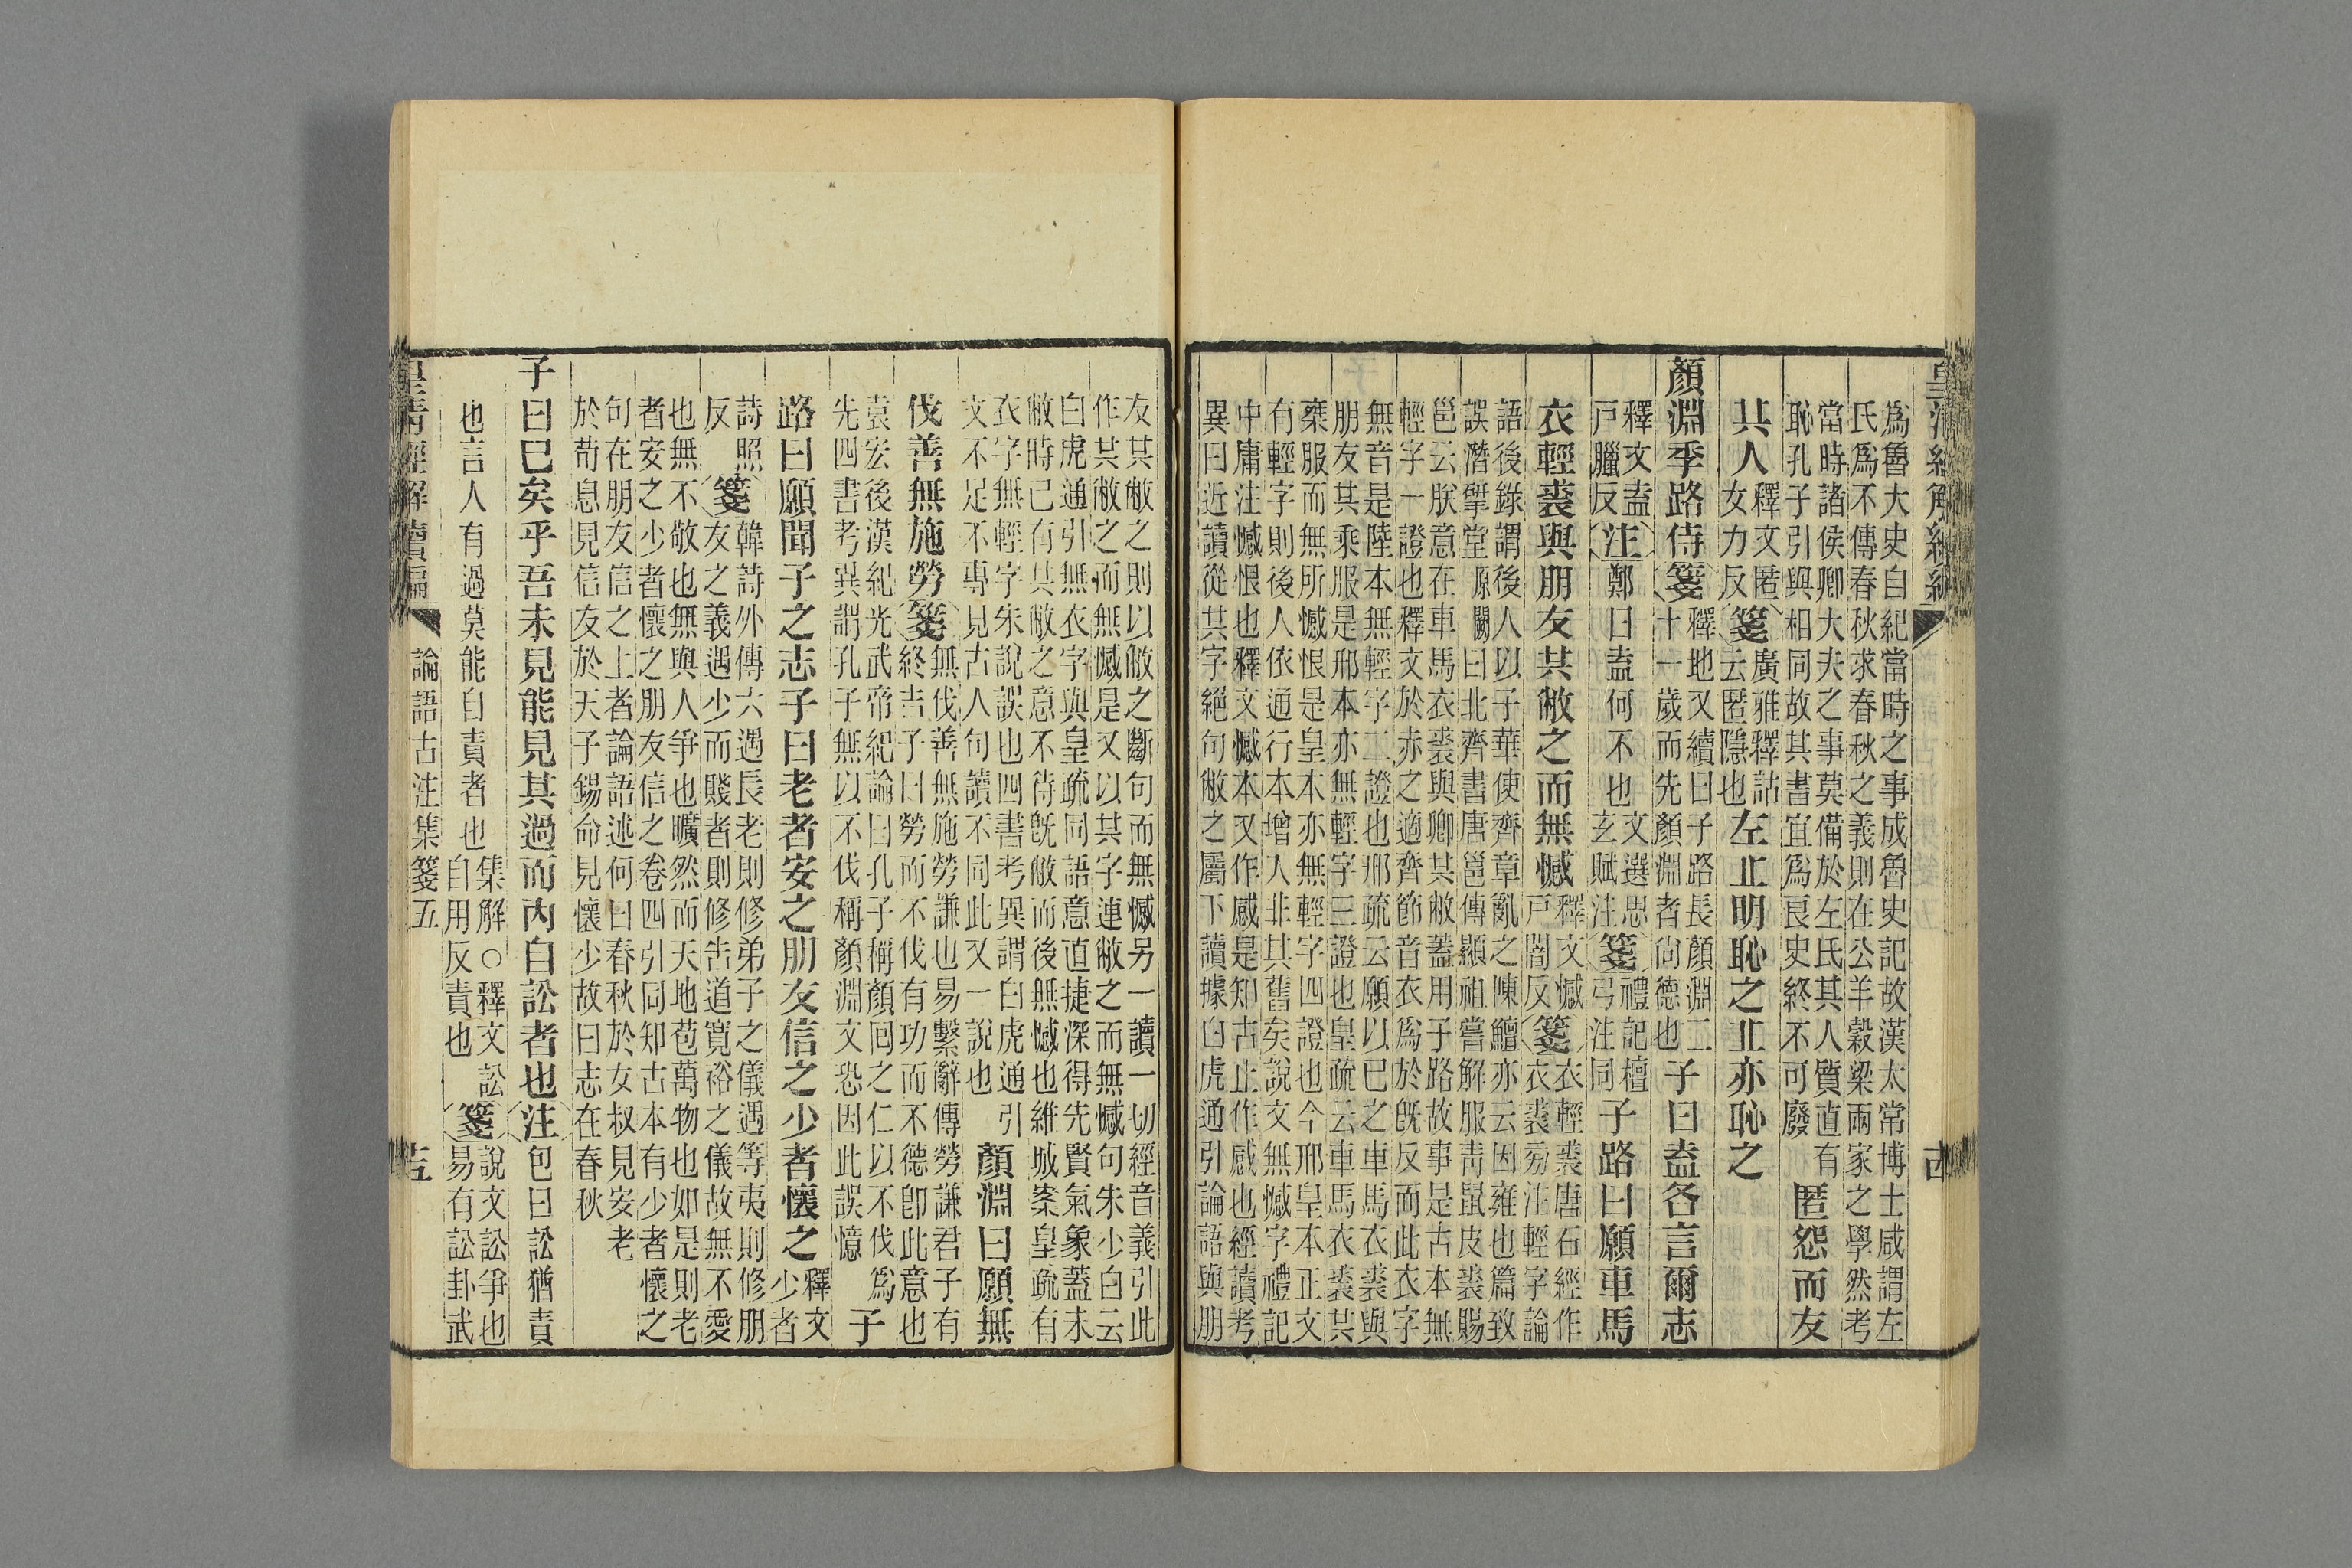 為魯大史自紀當時之事成魯史記故漢太常博士咸謂左
氏為不傳春秋求春秋之義則在公羊穀梁兩家之學然考
當時諸侯卿大夫之事莫備於左氏其人質直有
恥孔子引與相同故其書宜為良史終不可廢
匿怨而友
其人
釋文匿
女力反
箋
廣雅釋詁
云匿隱也
左丘明恥之丘亦恥之
顏淵季路侍
箋
釋地又續曰子路長顏淵二
十一歲而先顏淵者尚德也
子曰盍各言爾志
釋文盍
戶臘反
注
鄭曰盍何不也
文選思
玄賦注
箋
禮記檀
弓注同
子路曰願車馬
衣輕裘與朋友共敝之而無憾
釋文憾
戶闇反
箋
衣輕裘唐石經作
衣裘旁注輕字論
語後錄謂後人以子華使齊章亂之陳鱣亦云因雍也篇致
誤潛揅堂原闕曰北齊書唐邕傳顯祖嘗解服靑鼠皮裘賜
邕云朕意在車馬衣裘與卿共敝蓋用子路故事是古本無
輕字一證也釋文於赤之適齊節音衣為於旣反而此衣字
無音是陸本無輕字二證也邢疏云願以己之車馬衣裘與
朋友共乘服是邢本亦無輕字三證也皇疏云車馬衣裘共
椉服而無所憾恨是皇本亦無輕字四證也今邢皇本正文
有輕字則後人依通行本增入非其舊矣說文無憾字禮記
中庸注憾恨也釋文憾本又作感是知古止作感也經讀考
異曰近讀從共字絕句敝之屬下讀據白虎通引論語與朋
友共敝之則以敝之斷句而無憾另一讀一切經音義引此
作共敝之而無憾是又以其字連敝之而無憾句朱少白云
白虎通引無衣字與皇疏同語意直捷深得先賢氣象蓋未
敝時已有共敝之意不待旣敝而後無憾也維城案皇疏有
衣字無輕字朱說誤也四書考異謂白虎通引
文不足不專見古人句讀不同此又一說也
顏淵曰願無
伐善無施勞
箋
無伐善無施勞謙也易繫辭傳勞謙君子有
終吉子曰勞而不伐有功而不德卽此意也
袁宏後漢紀光武帝紀論曰孔子稱顏回之仁以不伐為
先四書考異謂孔子無以不伐稱顏淵文恐因此誤憶
子
路曰願聞子之志子曰老者安之朋友信之少者懷之
釋文
少者
詩照
反
箋
韓詩外傳六遇長老則修弟子之儀遇等夷則修朋
友之義遇少而賤者則修告道寬裕之儀故無不愛
也無不敬也無與人爭也曠然而天地苞萬物也如是則老
者安之少者懷之朋友信之卷四引同知古本有少者懷之
句在朋友信之上者論語述何曰春秋於女叔見安老
於荀息見信友於天子錫命見懷少故曰志在春秋
子曰已矣乎吾未見能見其過而內自訟者也
注
包曰訟猶責
也言人有過莫能自責者也
集解○釋文訟
自用反責也
箋
說文訟爭也
易有訟卦武
皇淸經解續編
論語古注集箋五